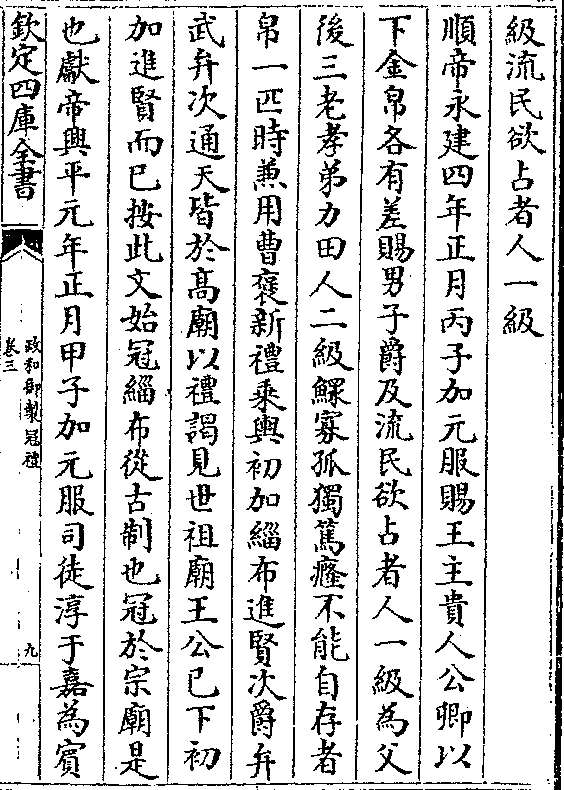 級流民欲占者人一級
順帝永建四年正月丙子加元服賜王主貴人公卿以
下金帛各有差賜男子爵及流民欲占者人一級為父
後三老孝弟力田人二級鰥寡孤獨篤癃不能自存者
帛一匹時兼用曹褒新禮乘輿初加緇布進賢次爵弁
武弁次通天皆於高廟以禮謁見世祖廟王公已下初
加進賢而已按此文始冠緇布從古制也冠於宗廟是
也獻帝興平元年正月甲子加元服司徒淳于嘉為賓
欽定四庫全書
政和御製冠禮
卷三
九